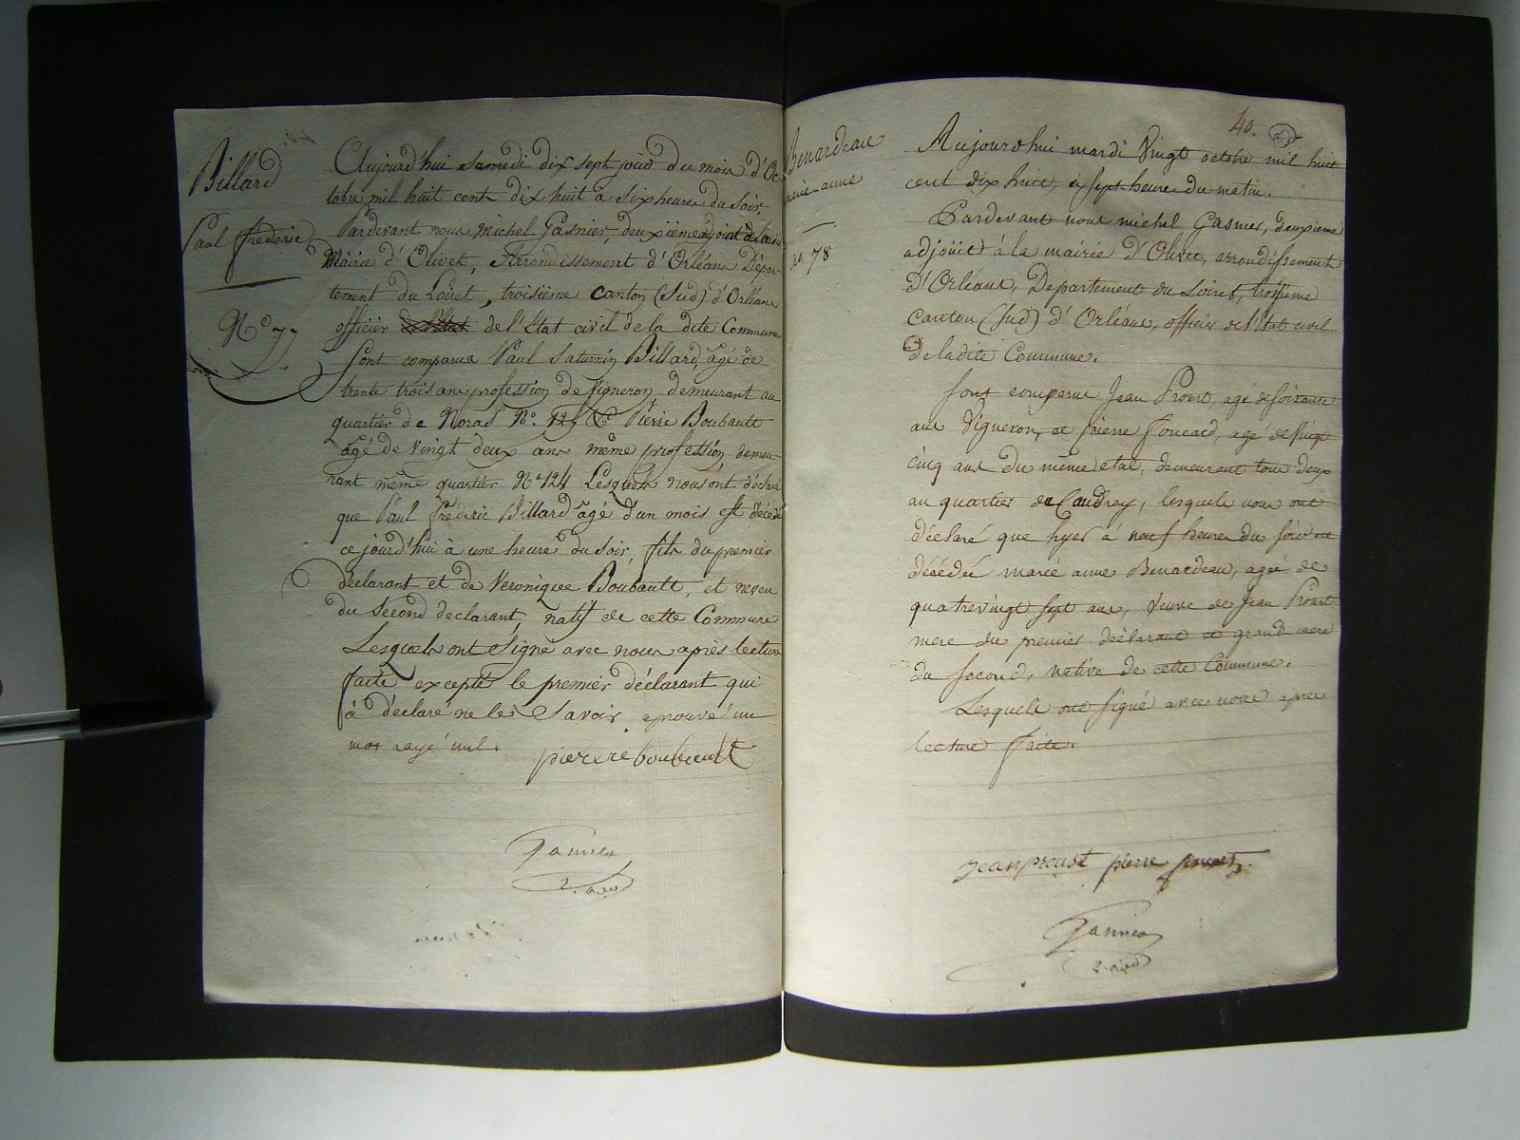 Billard
Paul frédéric
N.° 77
Aujourd'hui samedi dix sept jour du mois d'Oc
tobre mil huit cent dix huit à six heures du soir.
Pardevant nous Michel Gasnier, deuxième adjoint à la
Mairie d'Olivet, Arrondissement d'Orléans Dépar-
tement du Loiret, troisième Canton (Sud) d'Orléans
officier de l'Etat civil de la dite Commune
Sont comparus Paul Saturnin Billard, âgé de
trente trois ans profession de Vigneron demeurant au
quartier de N.° & Pierre Boubault
âgé de Vingt deux ans même profession demeu-
rant même quartier N.° 124 Lesquels nous ont déclaré
que Paul Fréderic Billard âgé d'un mois est décédé
ce jourd'hui à une heure du soir, fils du premier
déclarant et de Veronique Boubault, et neveu
du second declarant, natif de cette Commune
Lesquels ont Signé avec nous après lecture
faite excepté le premier déclarant qui
à déclaré ne le Savoir, aprouvé un
mot rayé nul.
pierre boubault
Gasnier
2. adj
Benardeau
marie anne
n. 78
40.
Aujourdhui mardi Vingt octobre mil huit
cent dix huit, à sept heures du matin.
Pardevant nous michel Gasnier, deuxieme
adjoint à la mairie d'Olivet, arrondissement
d'Orléans, Departement du Loiret, troisieme
Canton (Sud) d'Orléans, officier de l'Etat civil
de ladite Commune.
Sont comparus Jean Proust, agé de soixante
ans Vigneron, et pierre foucard, agé de Vingt
cinq ans du même etat, demeurant tous deux
au quartier de Caudray, lesquels nous ont
déclaré que hyer à neuf heures du soir est
décédée marie anne Benardeau, agée de
quatrevingt sept ans, Veuve de Jean Proust
mere du premier déclarant et grand mere
du second, native de cette Commune.
Lesquels ont signé avec nous apres
lecture faite.
jean proust pierre
Gasnier
2. adj